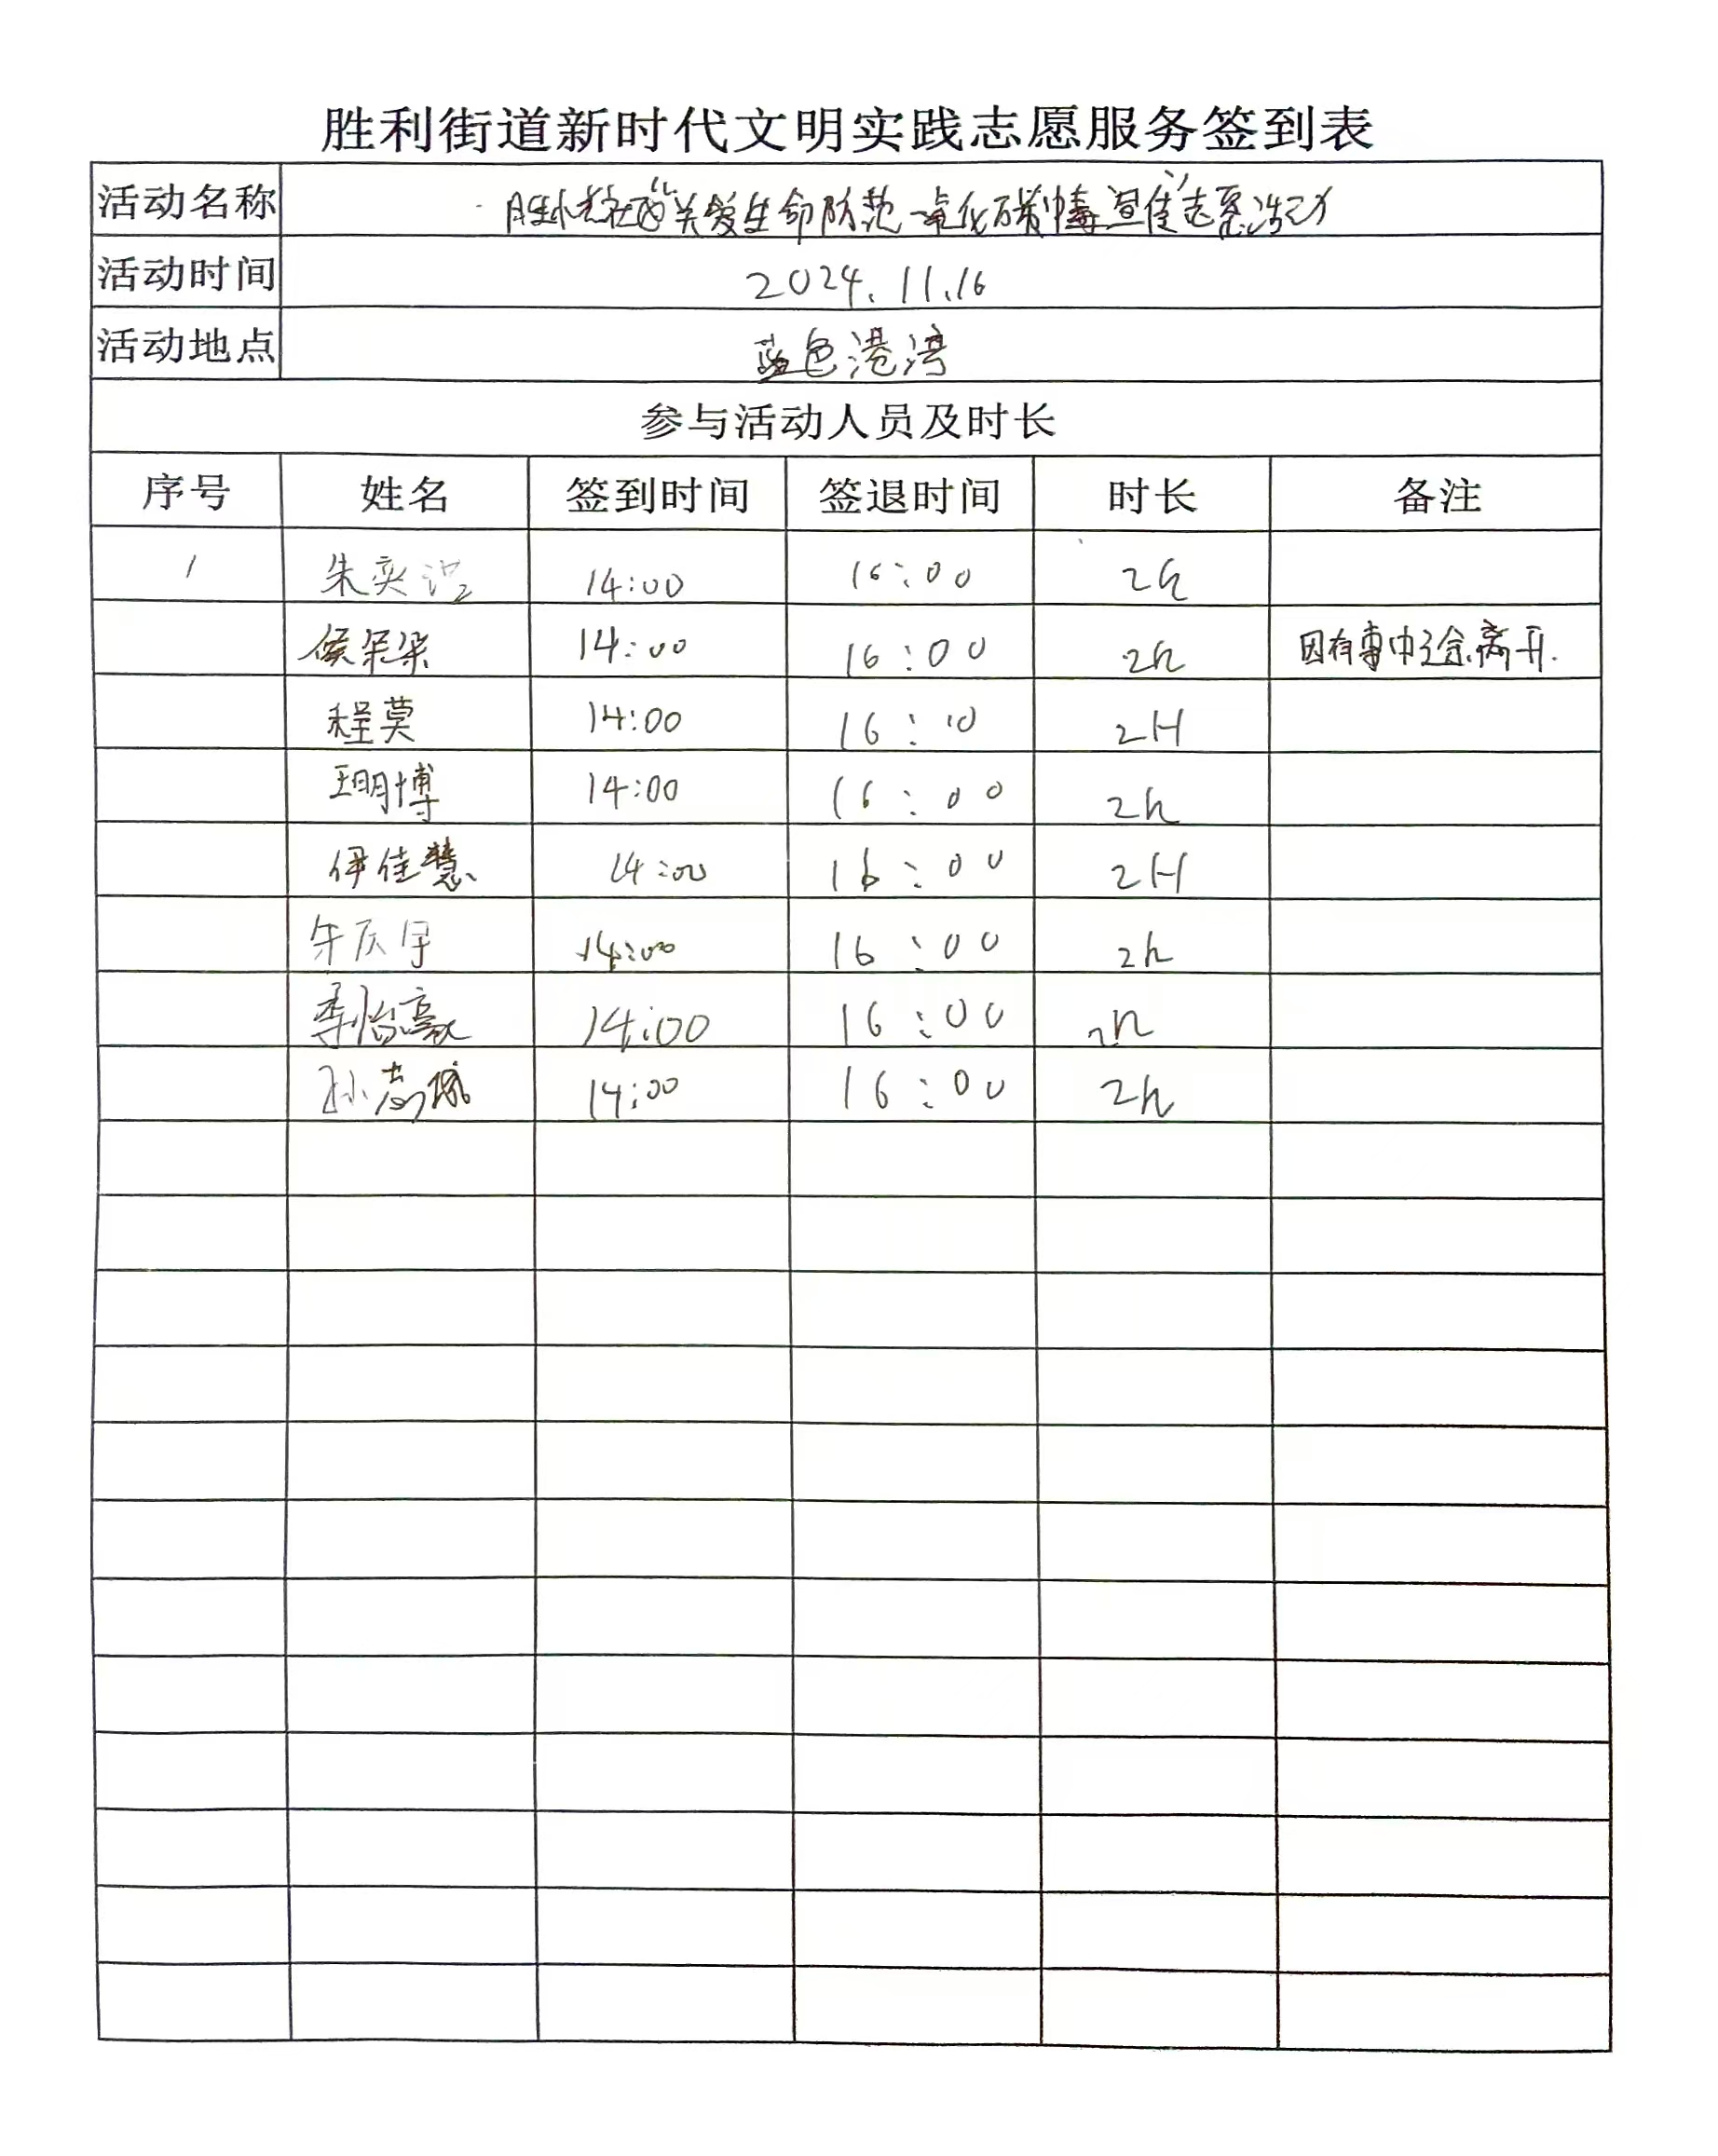 胜利街道新时代文明实践志愿服务签到表
活动名称 "关爱生命防范一氧化碳中毒宣传"志愿活动
活动时间 2024.11.16
活动地点 蓝色港湾
参与活动人员及时长
序号 姓名 签到时间 签退时间 时长 备注
1 朱奕 14:00 16:00 2h
侯朵朵 14:00 16:00 2h 因有事中途离开.
程莫 14:00 16:10 2H
王明博 14:00 16:00 2h
伊佳慧 14:00 16:00 2H
14:00 16:00 2h
李怡豪 14:00 16:00 2h
孙 14:00 16:00 2h